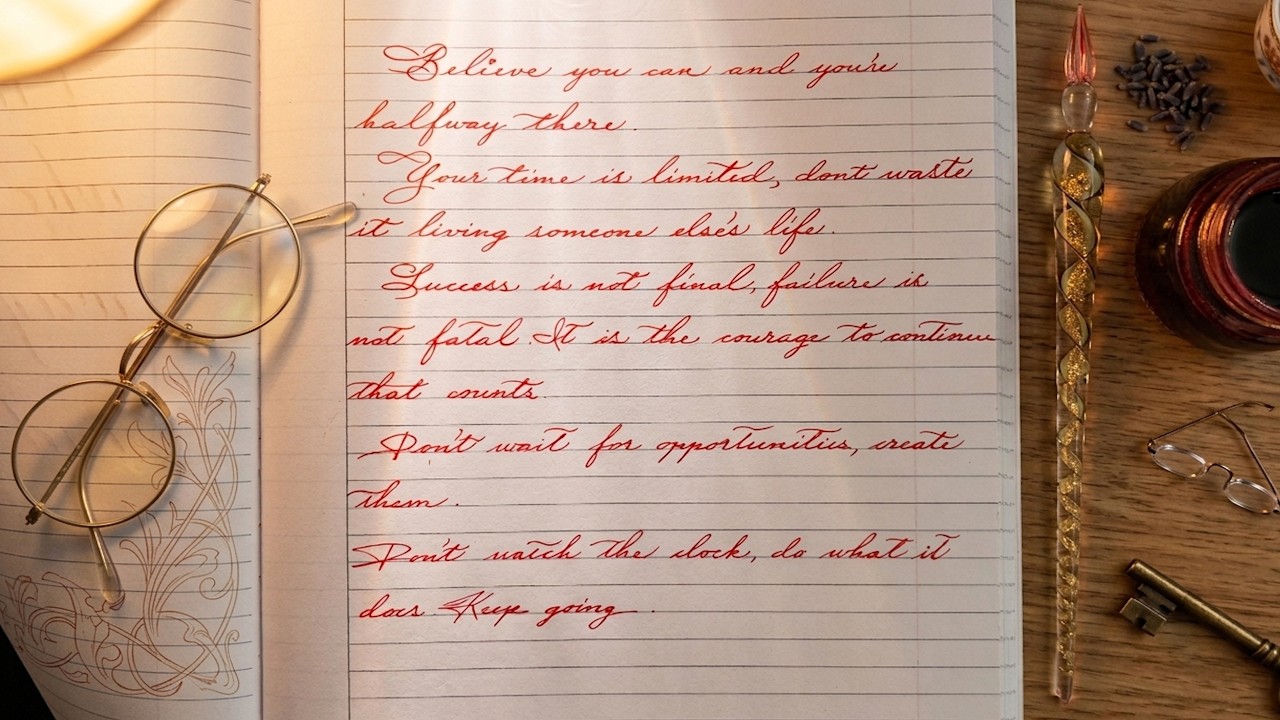 Believe you can and you're
halfway there.
Your time is limited, dont waste
it living someone else's life.
Success is not final, failure is
not fatal. It is the courage to continue
that counts.
Don't wait for opportunities, create
them.
Don't watch the clock, do what it
does. Keep going.